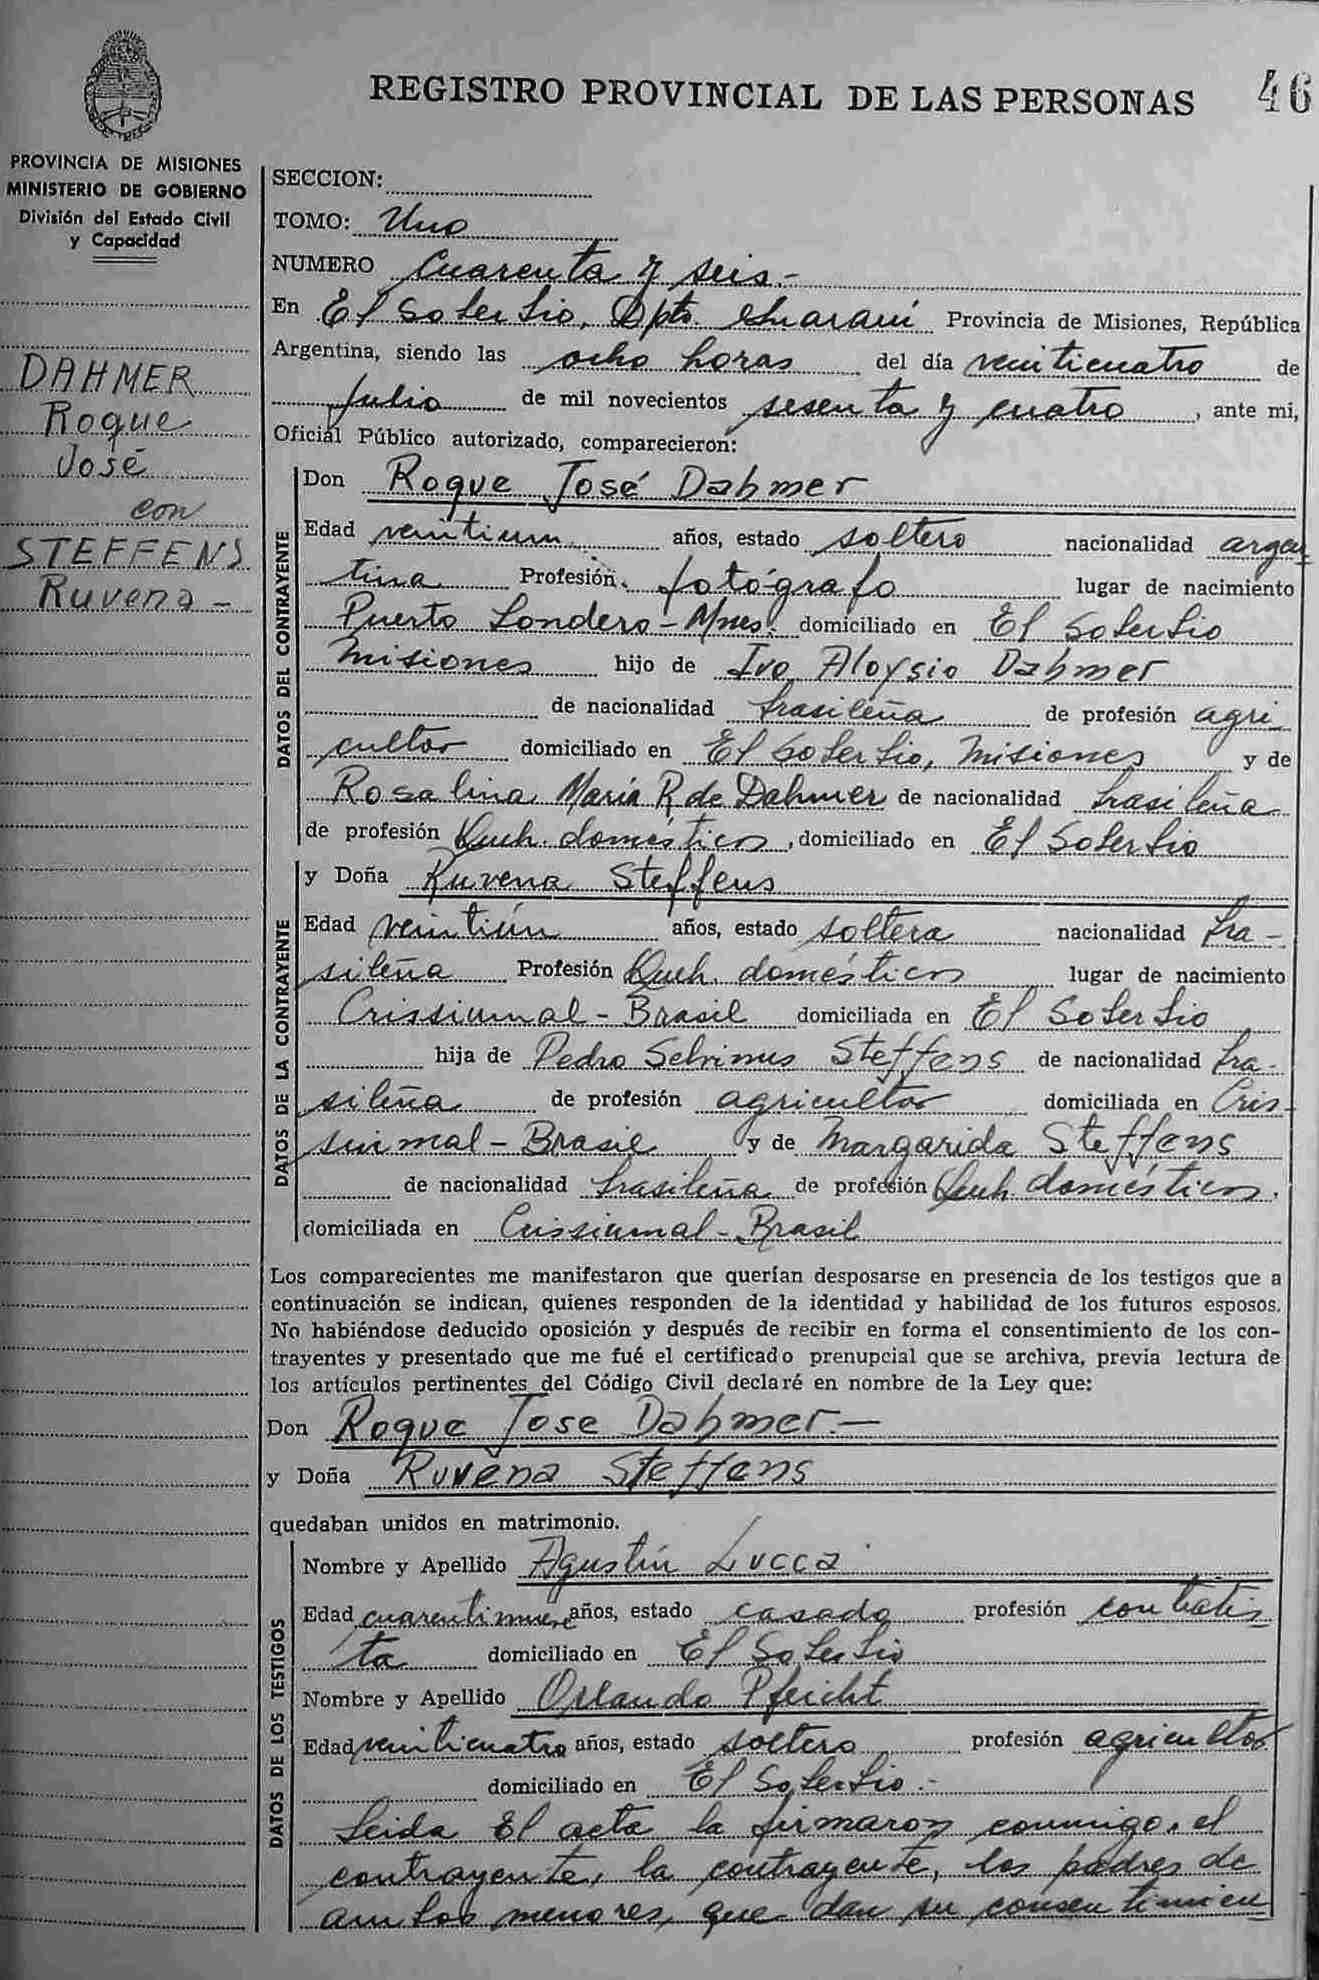 REGISTRO PROVINCIAL DE LAS PERSONAS 46
PROVINCIA DE MISIONES
MINISTERIO DE GOBIERNO
División del Estado Civil
y Capacidad
DAHMER
Roque
José
con
STEFFENS
Ruvena -
SECCION:
TOMO: Uno
NUMERO Cuarenta y seis.-
En El Soberbio, Dpto. Guaraní Provincia de Misiones, República
Argentina, siendo las ocho horas del día veinticuatro de
Julio de mil novecientos sesenta y cuatro, ante mi,
Oficial Público autorizado, comparecieron:
DATOS DEL CONTRAYENTE
Don Roque José Dahmer
Edad veintiun años, estado soltero nacionalidad argen
tina Profesión fotógrafo lugar de nacimiento
Puerto Londero - Mnes. domiciliado en El Soberbio
Misiones hijo de Ivo Aloysio Dahmer
de nacionalidad brasileña de profesión agri
cultor domiciliado en El Soberbio, Misiones y de
Rosalina María R de Dahmer de nacionalidad brasileña
de profesión Queh. domésticos, domiciliado en El Soberbio
DATOS DE LA CONTRAYENTE
y Doña Ruvena Steffens
Edad veintiún años, estado soltera nacionalidad bra-
sileña Profesión Queh. domésticos lugar de nacimiento
Crissiumal - Brasil domiciliada en El Soberbio
hija de Pedro Selvinus Steffens de nacionalidad bra-
sileña de profesión agricultor domiciliada en Cris-
siumal - Brasil y de Margarida Steffens
de nacionalidad brasileña de profesión Queh. domésticos.
domiciliada en Crissiumal - Brasil
Los comparecientes me manifestaron que querían desposarse en presencia de los testigos que a
continuación se indican, quienes responden de la identidad y habilidad de los futuros esposos.
No habiéndose deducido oposición y después de recibir en forma el consentimiento de los con-
trayentes y presentado que me fué el certificado prenupcial que se archiva, previa lectura de
los artículos pertinentes del Código Civil declaré en nombre de la Ley que:
Don Roque Jose Dahmer.-
y Doña Ruvena Steffens
quedaban unidos en matrimonio.
DATOS DE LOS TESTIGOS
Nombre y Apellido Agustín Lucca
Edad cuarentinueve años, estado casado profesión contratis
ta domiciliado en El Soberbio
Nombre y Apellido Orlando Pfeicht
Edad veinticuatro años, estado soltero profesión agricultor
domiciliado en El Soberbio.-
Leida El acta la firmaron conmigo, el
contrayente, la contrayente, los padres de
ambos menores, que dan su consentimien